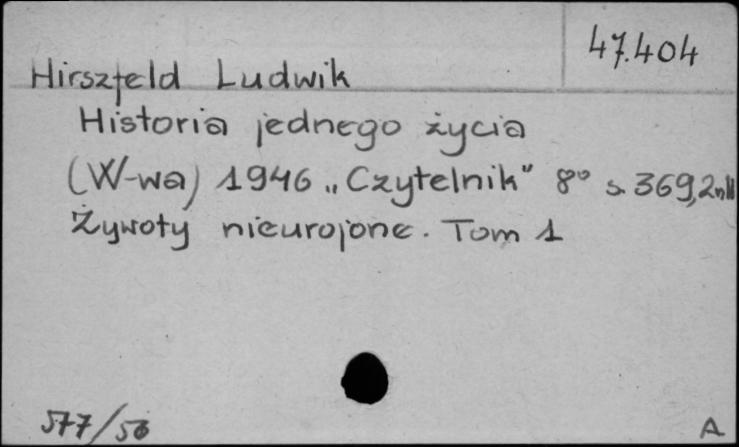 47.404
Hirszfeld Ludwik
Historia jednego życia
(W-wa) 1946 „Czytelnik" 8° s. 369, 2nlb
Żywoty nieurojone. Tom 1
577/56
A